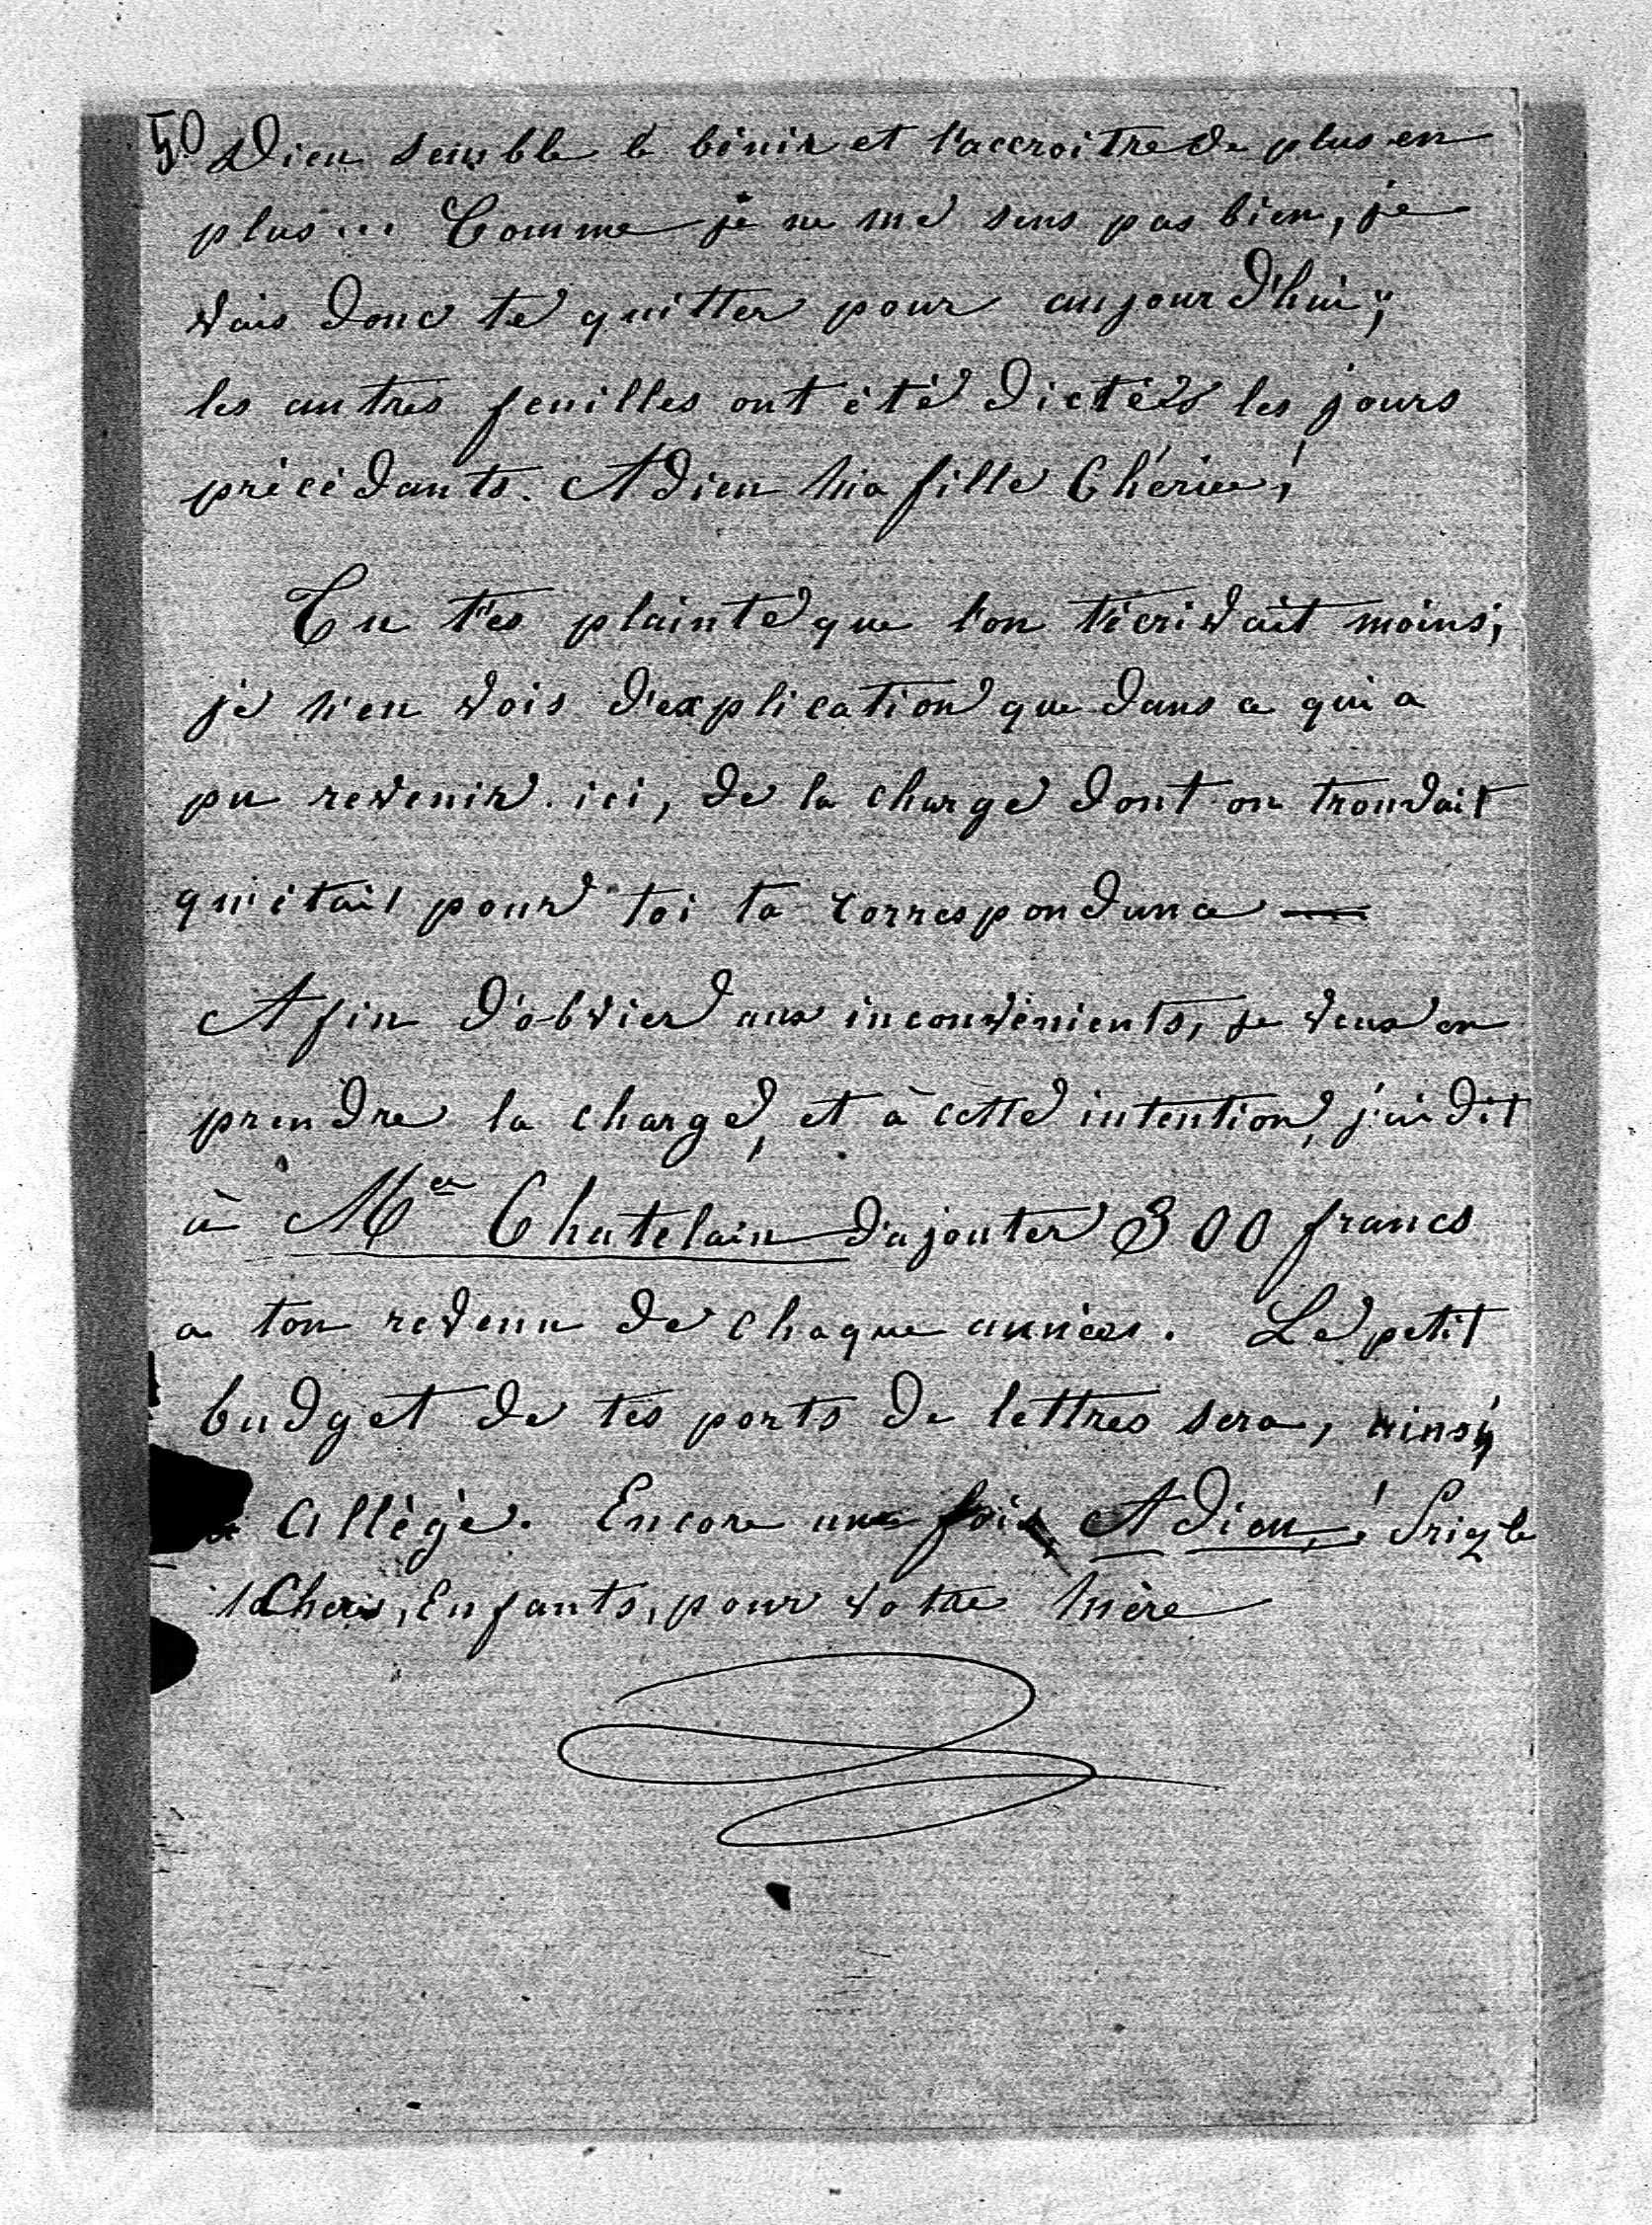 50 Dieu semble le bénir et l'accroître de plus en
plus... Comme je ne me sens pas bien, je
vais donc te quitter pour aujourd'hui;
les autres feuilles ont été dictées les jours
précédants. Adieu ma fille Chérie!
Tu t'es plainte que l'on t'écrivait moins;
je n'en vois d'explication que dans ce qui a
pu revenir ici, de la charge dont on trouvait
qu'était pour toi ta correspondance —
Afin d'obvier aux inconvénients, je veux en
prendre la charge, et à cette intention, j'ai dit
à Mr Chatelain d'ajouter 300 francs
a ton revenu de chaque années. Le petit
budget de tes ports de lettres sera, ainsi,
Allègé. Encore une fois, Adieu! Priez
Chers, Enfants, pour votre Mère